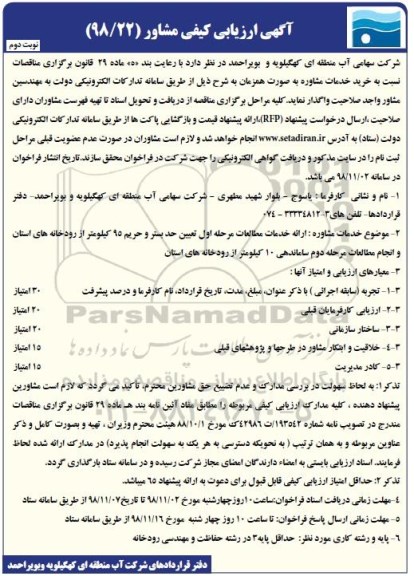 آگهی ارزیابی کیفی مشاور (۹۸/۲۲)
نوبت دوم
شرکت سهامی آب منطقه ای کهگیلویه و بویراحمد در نظر دارد با رعایت بند «ه» ماده ۲۹ قانون برگزاری مناقصات
نسبت به خرید خدمات مشاوره به صورت همزمان به شرح ذیل از طریق سامانه تدارکات الکترونیکی دولت به مهندسین
مشاور واجد صلاحیت واگذار نماید. کلیه مراحل برگزاری مناقصه از دریافت و تحویل اسناد تا تهیه فهرست مشاوران دارای
صلاحیت ،ارسال درخواست پیشنهاد (RFP)،ارائه پیشنهاد قیمت و بازگشایی پاکت ها از طریق سامانه تدارکات الکترونیکی
دولت (ستاد) به آدرس www.setadiran.ir انجام خواهد شد و لازم است مشاوران در صورت عدم عضویت قبلی مراحل
ثبت نام را در سایت مذکور و دریافت گواهی الکترونیکی را جهت شرکت در فراخوان محقق سازند.تاریخ انتشار فراخوان
در سامانه ۹۸/۱۱/۰۲ می باشد.
۱- نام و نشانی کارفرما : یاسوج - بلوار شهید مطهری – شرکت سهامی آب منطقه ای کهگیلویه و بویراحمد- دفتر
قراردادها- تلفن های۳-۳۳۳۳۴۸۱۲ - ۰۷۴
۲- موضوع خدمات مشاوره : ارائه خدمات مطالعات مرحله اول تعیین حد بستر و حریم ۹۵ کیلومتر از رودخانه های استان
و انجام مطالعات مرحله دوم ساماندهی ۱۰ کیلومتر از رودخانه های استان
۳- معیارهای ارزیابی و امتیاز آنها :
۳-۱- تجربه (سابقه اجرائی ) با ذکر عنوان، مبلغ، مدت، تاریخ قرارداد، نام کارفرما و درصد پیشرفت ۳۰ امتیاز
۳-۲- ارزیابی کارفرمایان قبلی ۲۰ امتیاز
۳-۳- ساختار سازمانی ۲۰ امتیاز
۳-۴- خلاقیت و ابتکار مشاور در طرحها و پژوهشهای قبلی ۱۵ امتیاز
۳-۵- کادر مدیریت ۱۵ امتیاز
تذکر۱: به لحاظ سهولت در بررسی مدارک و عدم تضییع حق مشاورین محترم، تأکید می گردد که لازم است مشاورین
پیشنهاد دهنده ، کلیه مدارک ارزیابی کیفی مربوطه را مطابق مفاد آئین نامه بند هی ماده ۲۹ قانون برگزاری مناقصات
مندرج در تصویب نامه شماره ۱۹۳۵۴۲/ت ۴۲۹۸۶ک مورخ ۸۸/۱۰/۱ هیئت محترم وزیران ، تهیه و بصورت کامل و ذکر
عناوین مربوطه و به همان ترتیب ( به نحویکه دسترسی به هر یک به سهولت انجام پذیرد) در مدارک ارائه شده لحاظ
فرمایند. اسناد ارزیابی بایستی به امضاء دارندگان امضای مجاز شرکت رسیده و در سامانه ستاد بارگذاری گردد.
تذکر ۲: حداقل امتیاز ارزیابی کیفی قابل قبول برای دعوت به ارائه پیشنهاد ۶۵ میباشد.
۴-مهلت زمانی دریافت اسناد فراخوان:ساعت۱۰روزچهارشنبه مورخ ۹۸/۱۱/۰۲ تا تاریخ۹۸/۱۱/۰۷ از طریق سامانه ستاد
۵- مهلت زمانی ارسال پاسخ فراخوان: تا ساعت ۱۰ روز چهار شنبه مورخ ۹۸/۱۱/۱۶ از طریق سامانه ستاد
۶- پایه و رشته کاری مورد نظر: حداقل پایه۳ در رشته حفاظت و مهندسی رودخانه
دفتر قراردادهای شرکت آب منطقه ای کهگیلویه وبویراحمد
ParsNamadData